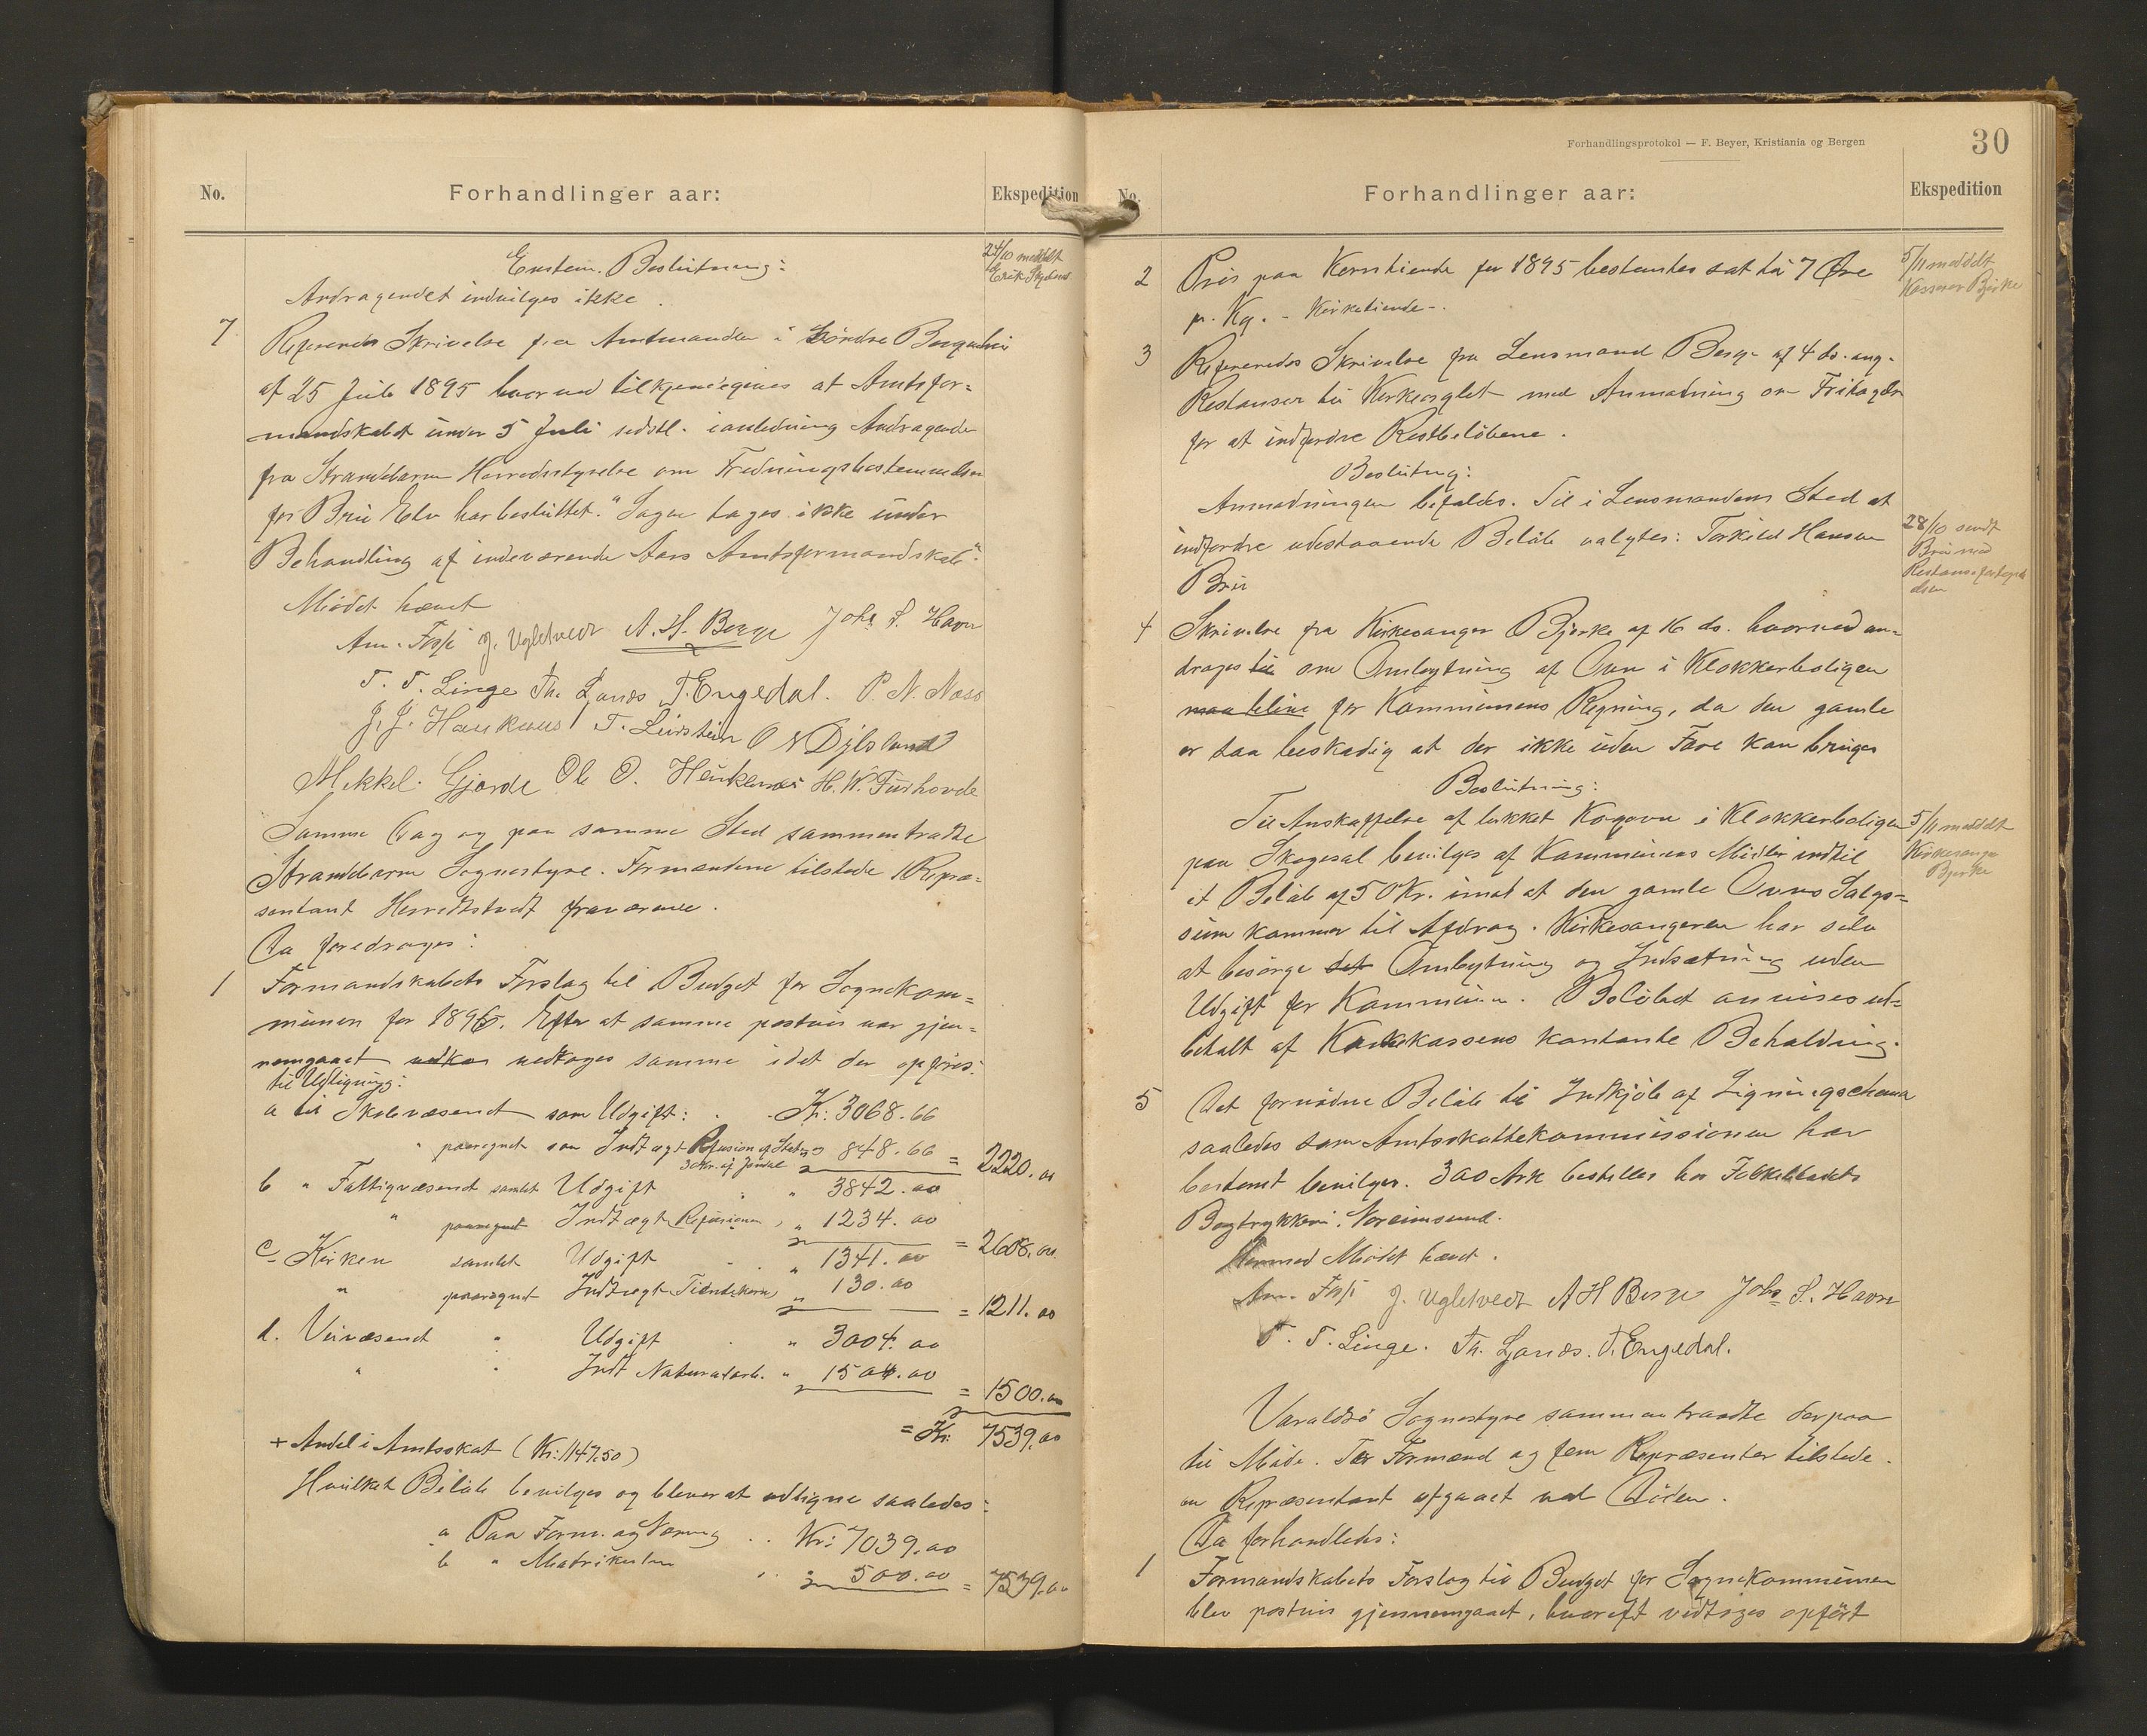 No.
Forhandlinger aar:
Ekspedition
Enstem. Beslutning:
24/10 meddelt
Erik
Andragendet indvilges ikke.
7
Refereredes Skrivelse fra Amtmanden i Søndre Bergenhus
af 25 Juli 1895 hvorved tilkjendegives at Amtsfor=
mandskabet under 5 Juli sidstl. i anledning Andragende
fra Strandebarm Herredsstyrelse om Fredningsbestemmelser
for Bru Elv har besluttet: "Sagen tages ikke under
Behandling af indeværende Aars Amtsformandskab".
Mødet hævet
Am. Fosse J. Ugletvedt A. H. Berge Johs S. Havn
T. T. Linge Th. Ljones T. Engedal. P. N. Næss
J. J. Haukenes T. Leirstein O N Djøsland
Mikkel. Gjerde Ole O. Heukenæs H. W. Furhovde
Samme Dag og paa samme Sted sammentraadte
Strandebarm Sognestyre. Formændene tilstede 1 Repræ=
sentant Herredstvedt fraværende.
Da foredroges:
1
Formandskabets Forslag til Budget for Sognekom=
munen for 1896. Efter at samme postvis var gjen=
nemgaaet vedtoges samme idet der opføres:
til Udligning:
a til Skolevæsenet som Udgift: Kr: 3068.66
" paaregnet som Indtægt Refusion af Staten 848.66 = 2220.00
30 Kr. af Jondal
b " Fattigvæsenet samlet Udgift " 3842.00
" paaregnet Indtægt (Refusioner) " 1234.00 = 2608.00
c Kirken samlet Udgift " 1341.00
" paaregnet Indtægt Tiendekorn " 130.00 = 1211.00
d. Veivæsenet " Udgift " 3004.00
" " Indt Naturalarb. " 1504.00 = 1500.00
= Kr. 7539.00
+ Andel i Amtsskat (Kr: 1147.50)
Hvilket Beløb bevilges og bliver at udligne saaledes:
a Paa Form. og Næring .. Kr: 7039.00
b " Matrikulen " 500.00 = 7539.00
Forhandlingsprotokol — F. Beyer, Kristiania og Bergen
30
No.
Forhandlinger aar:
Ekspedition
2
Pris paa Korntiende for 1895 bestemtes sat til 7 Øre
pr. Kg. - Kirketiende -.
5/11 meddelt
Kasserer Bjerke
3
Refereredes Skrivelse fra Lensmand Berge af 4 ds. ang.
Restanser til Kirkeorglet med Anmodning om Fritagelse
for at indfordre Restbeløbene.
Beslutng:
Anmodningen bifaldes. Til i Lensmandens Sted at
indfordre udestaaende Beløb valgtes: Torkild Hansen
Bru
28/10 sendt
Bru med
Restansefortegnel
elsen
4
Skrivelse fra Kirkesanger Bjerke af 16 ds. hvorved an=
drages til om Ombytning af Ovn i Klokkerboligen
maa blive for Kommunens Regning, da den gamle
er saa beskadig at der ikke uden Fare kan bruges
Beslutning:
Til Anskaffelse af lukket Kogovn i Klokkerboligen
paa Skogesal bevilges af Kommunens Midler indtil
et Beløb af 50 Kr. imod at den gamle Ovns Salgs=
sum kommer til Afdrag. Kirkesangeren har selv
at besørge det Ombytning og Indsætning uden
Udgift for Kommunen. Beløbet anvises ud=
betalt af Kirkekassens kontante Beholdning.
5/11 meddelt
Kirkesanger
Bjerke
5
Det fornødne Beløb til Indkjøb af Ligningschema
saaledes som Amtsskattekommissionen har
bestemt bevilges. 300 Ark bestilles hos Folkebladets
Bogtrykkeri, Noreimsund.
Hermed Mødet hævet.
Am. Fosse J. Ugletvedt A H Berge Johs S. Havn
T. T. Linge. Th. Ljones. T. Engedal.
Varaldsø Sognestyre sammentraadte derpaa
til Møde. To Formænd og fem Repræsenter tilstede.
en Repræsentant afgaaet ved Døden.
Da forhandledes:
1
Formandskabets Forslag til Budget for Sognekommunen
blev postvis gjennemgaaet, hvoreft vedtoges opført